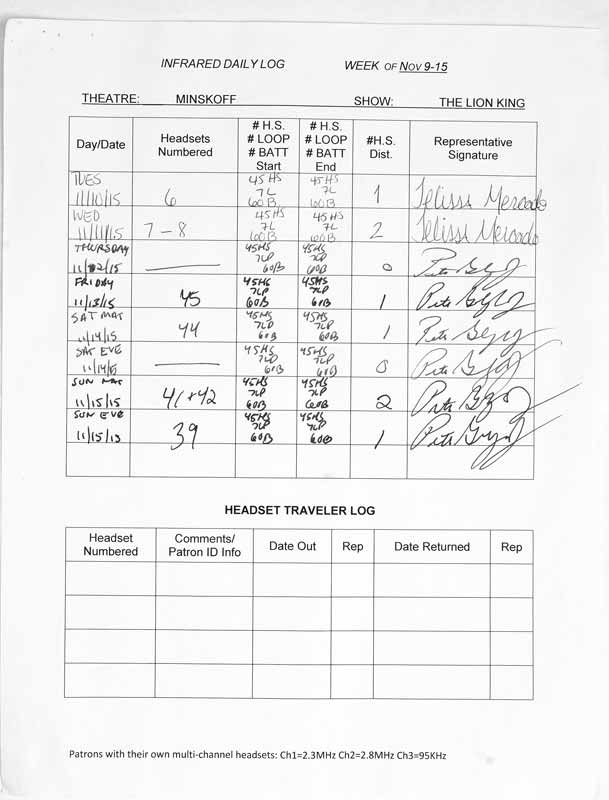 INFRARED DAILY LOG WEEK OF NOV 9-15
THEATRE: MINSKOFF SHOW: THE LION KING
Day/Date Headsets Numbered # H.S. # LOOP # BATT Start # H.S. # LOOP # BATT End #H.S. Dist. Representative Signature
TUES 11/10/15 6 45 HS 7L 60B 45 HS 7L 60B 1 Mercado
WED 11/11/15 7-8 45HS 7L 60B 45HS 7L 60B 2 Mercado
THURSDAY 11/12/15 — 45HS 7LP 60B 45HS 7LP 60B 0 Pete
FRIDAY 11/13/15 45 45HS 7LP 60B 45HS 7LP 60B 1 Pete
SAT MAT 11/14/15 44 45HS 7LP 60B 45HS 7LP 60B 1 Pete
SAT EVE 11/14/15 — 45HS 7LP 60B 45HS 7LP 60B 0 Pete
SUN MAT 11/15/15 41+42 45HS 7LP 60B 45HS 7LP 60B 2 Pete
SUN EVE 11/15/15 39 45HS 7LP 60B 45HS 7LP 60B 1 Pete
HEADSET TRAVELER LOG
Headset Numbered Comments/ Patron ID Info Date Out Rep Date Returned Rep
Patrons with their own multi-channel headsets: Ch1=2.3MHz Ch2=2.8MHz Ch3=95KHz